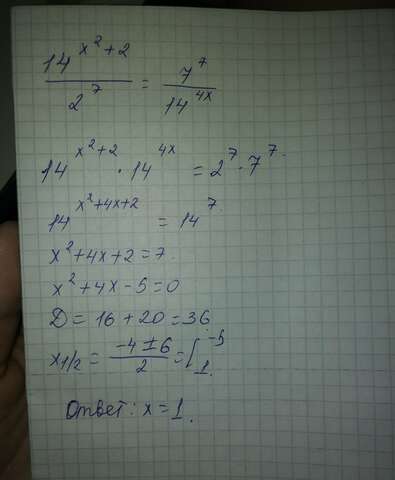 14^(x²+2) / 2^7 = 7^7 / 14^(4x)
14^(x²+2) · 14^(4x) = 2^7 · 7^7.
14^(x²+4x+2) = 14^7.
x²+4x+2=7.
x²+4x-5=0
D=16+20=36
x1/2 = (-4±6)/2 = [-5 1.
Ответ: x=1.